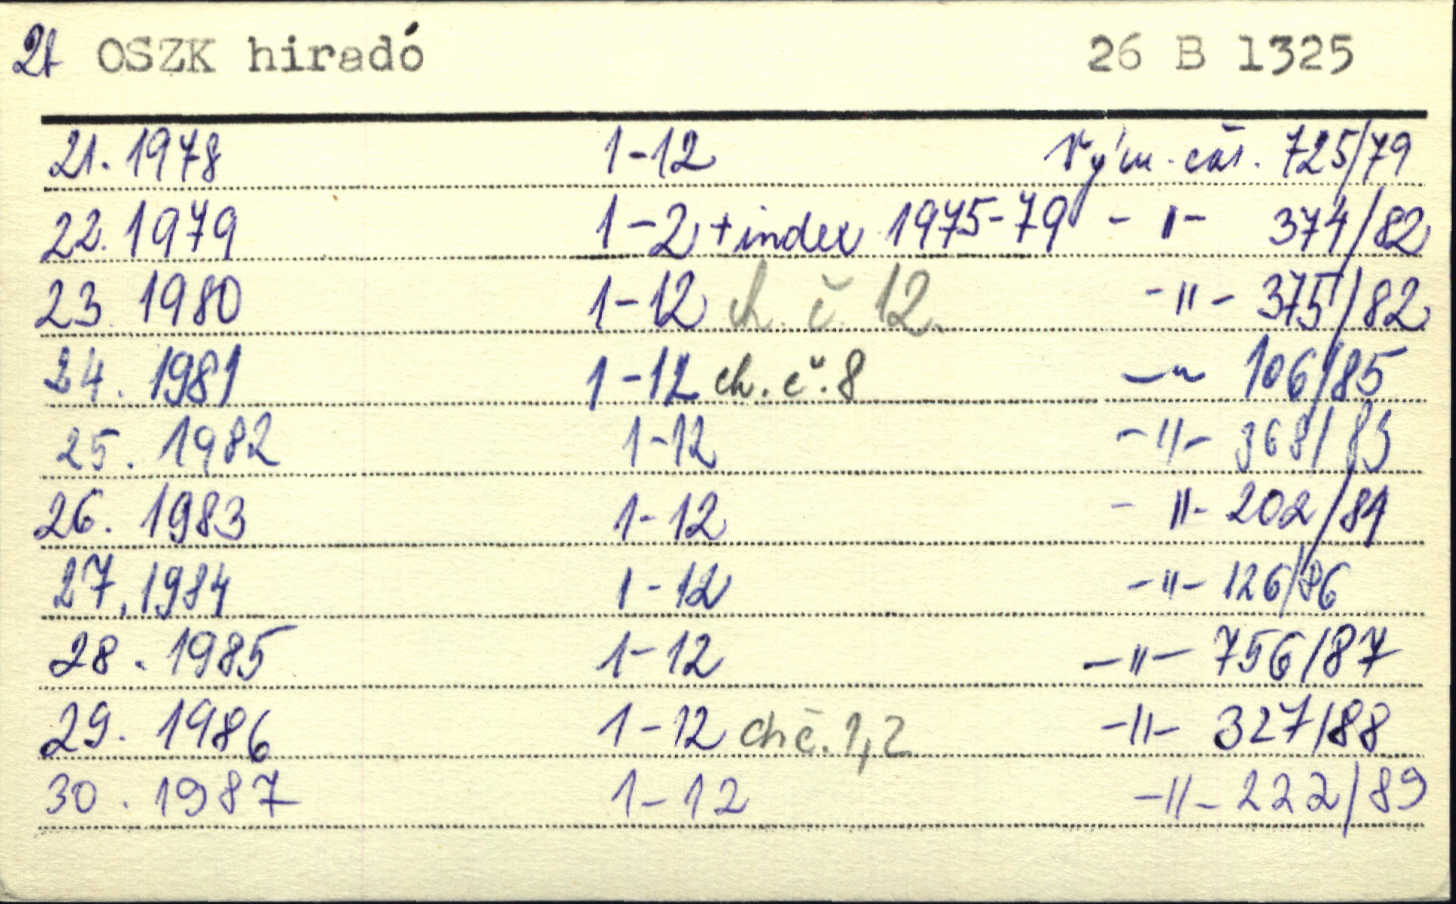 2t OSZK hiradó 26 B 1325
21. 1978 1-12 Vým. čás. 725/79
22. 1979 1-2 + index 1975-79 -"- 374/82
23 1980 1-12 ch. č. 12. -"- 375/82
24. 1981 1-12 ch. č. 8 -"- 106/85
25. 1982 1-12 -"- 368/83
26. 1983 1-12 -"- 202/84
27, 1984 1-12 -"- 126/86
28. 1985 1-12 -"- 756/87
29. 1986 1-12 ch č. 1,2 -"- 327/88
30. 1987 1-12 -"- 222/89